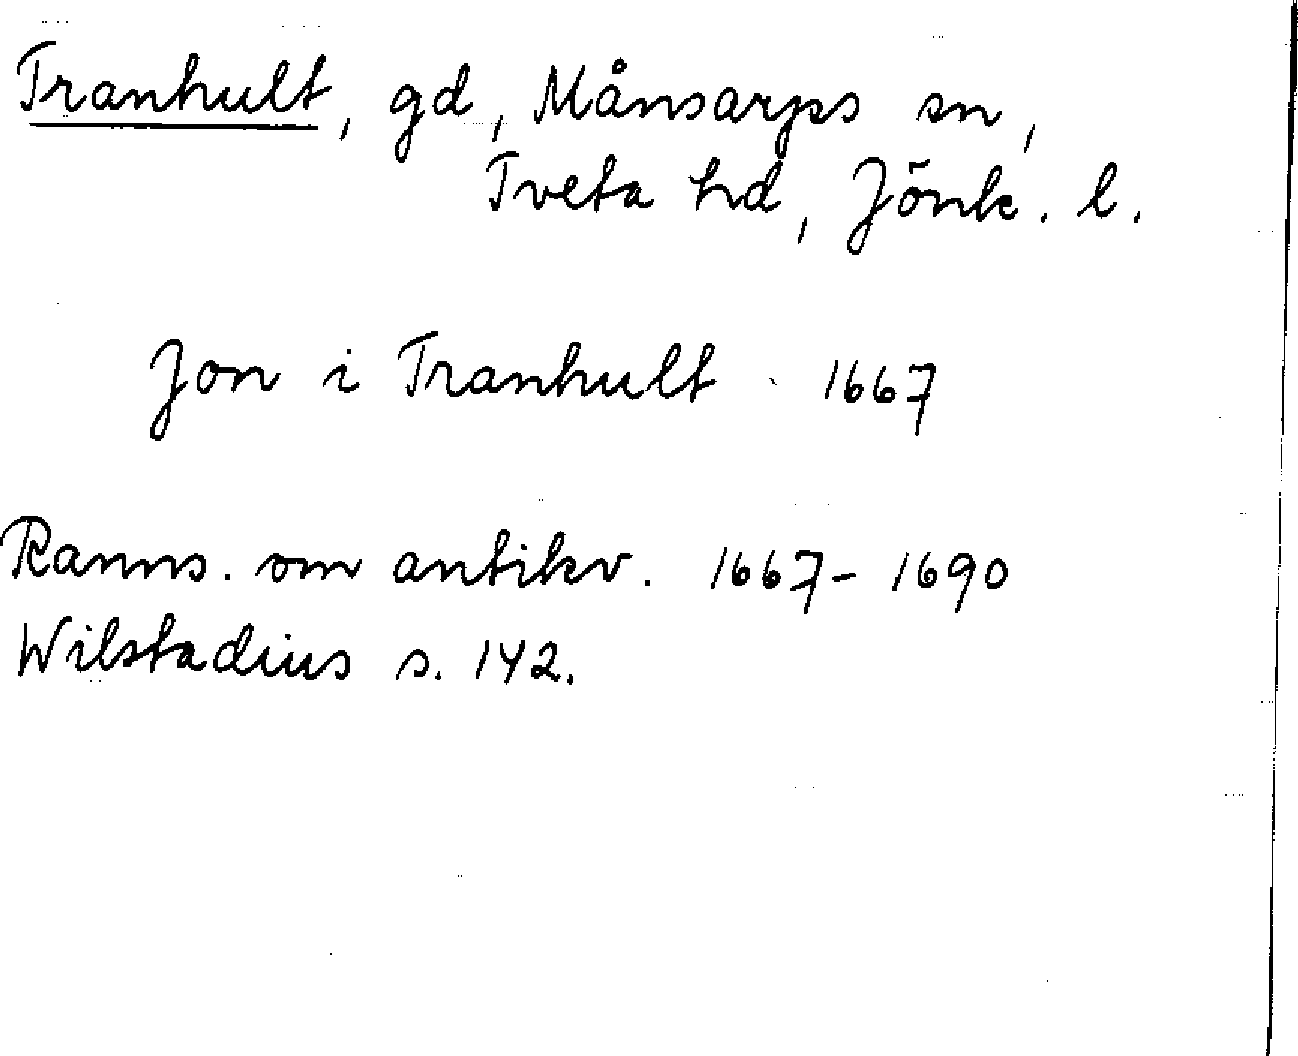 Tranhult, gd, Månsarps sn,
Tveta hd, Jönk. l.
Jon i Tranhult 1667
Ranns. om antikv. 1667-1690
Wilstadius s. 142.